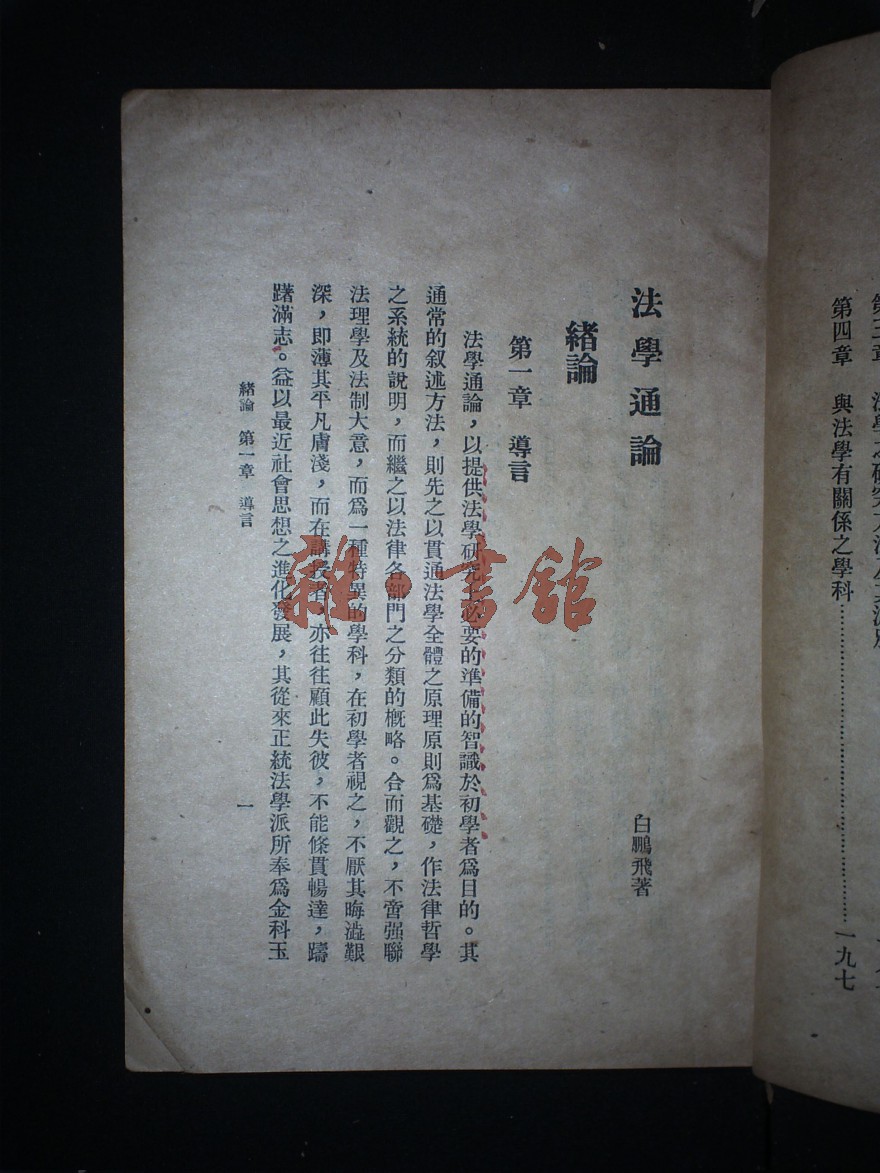 第四章　與法學有關係之學科……………………一九七
法學通論
白鵬飛著
緒論
第一章　導言
法學通論，以提供法學研究上必要的準備的智識於初學者爲目的。其
通常的叙述方法，則先之以貫通法學全體之原理原則爲基礎，作法律哲學
之系統的說明，而繼之以法律各部門之分類的槪略。合而觀之，不啻强聯
法理學及法制大意，而爲一種特異的學科，在初學者視之，不厭其晦澁艱
深，即薄其平凡膚淺，而在講授者，亦往往顧此失彼，不能條貫暢達，躊
躇滿志。益以最近社會思想之進化發展，其從來正統法學派所奉爲金科玉
緒論　第一章　導言
一
雜·書館